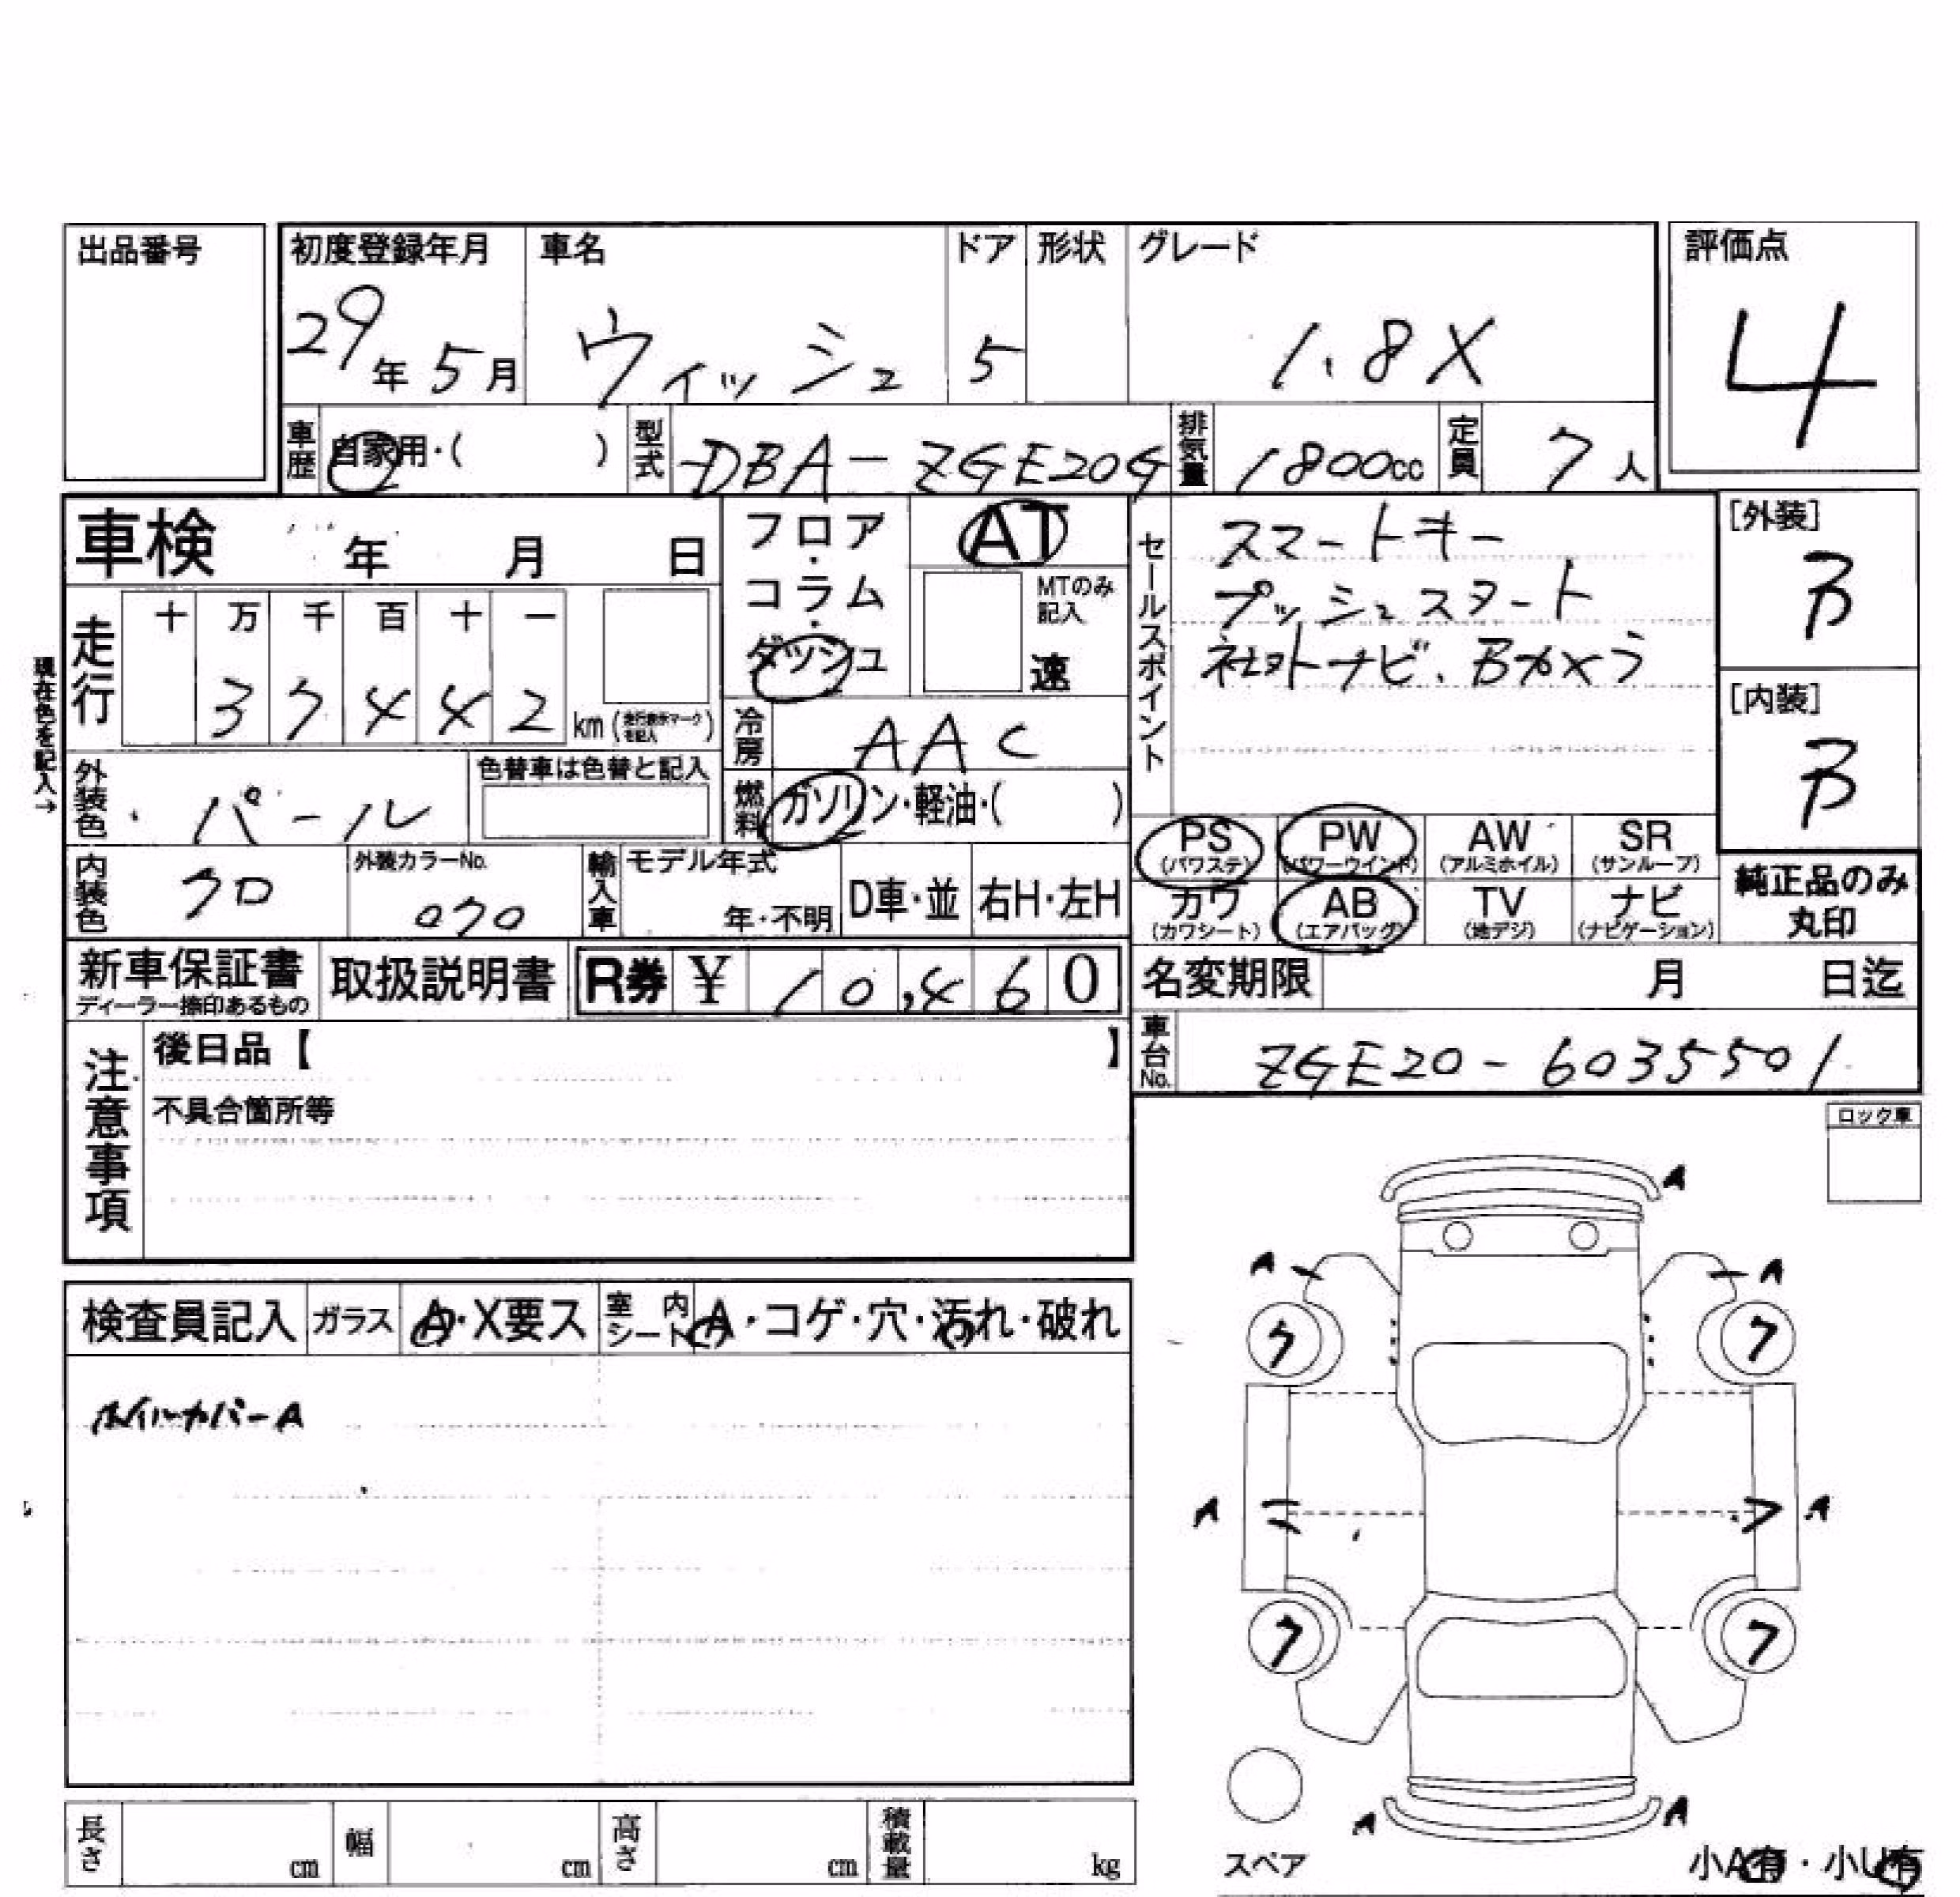 出品番号
初度登録年月 車名 ドア 形状 グレード 評価点
29年 5月 ウィッシュ 5 1.8X 4
車歴 自家用・( ) 型式 DBA-ZGE20G 排気量 1800cc 定員 7人
車検 年 月 日
フロア・コラム・ダッシュ
AT
MTのみ記入
速
セールスポイント
スマートキー
プッシュスタート
社外ナビ、Bカメラ
[外装]
B
[内装]
B
現在色を記入→
走行 十 万 千 百 十 一
3 7 4 4 2 km (走行表示マークを記入)
冷房 AAC
外装色 パール 色替車は色替と記入
燃料 ガソリン・軽油・( )
PS (パワステ) PW (パワーウインド) AW (アルミホイル) SR (サンルーフ)
カワ (カワシート) AB (エアバッグ) TV (地デジ) ナビ (ナビゲーション)
純正品のみ丸印
内装色 クロ 外装カラーNo. 070 輸入車 モデル年式 年・不明 D車・並 右H・左H
新車保証書 ディーラー捺印あるもの 取扱説明書 R券 ¥ 10,460
名変期限 月 日迄
車台No. ZGE20-6035501
注意事項
後日品【 】
不具合箇所等
ロック車
検査員記入 ガラス A・X要ス 室内シート A・コゲ・穴・汚れ・破れ
ホイルカバーA
A
A A
7 7
A A
7 7
A A
スペア
小A有・小U有
長さ cm 幅 cm 高さ cm 積載量 kg